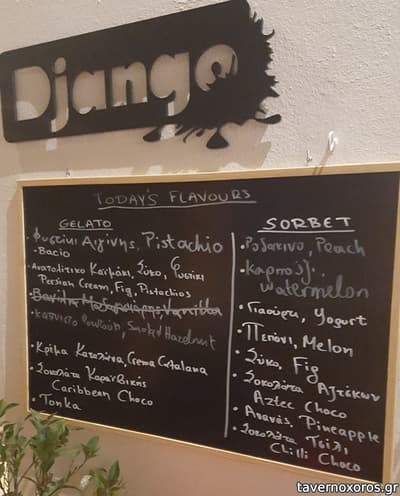 Django
TODAY'S FLAVOURS
GELATO
• Φυστίκι Αιγίνης, Pistachio
• Bacio
• Ανατολίτικο Καϊμάκι, Σύκο, Φυστίκι
Persian Cream, Fig, Pistachios
• Βανίλια Μαδαγασκάρης, Vanilla
• καπνιστό φουντούκι, Smoked Hazelnut
• Κρέμα Καταλάνα, Crema Catalana
• Σοκολάτα Καραϊβικής
Caribbean Choco
• Tonka
SORBET
• Ροδάκινο, Peach
• Καρπούζι,
watermelon
• Γιαούρτι, Yogurt
• Πεπόνι, Melon
• Σύκο, Fig
• Σοκολάτα Αζτέκων
Aztec Choco
• Ανανάς, Pineapple
• Σοκολάτα Τσίλι
Chilli Choco
tavernoxoros.gr